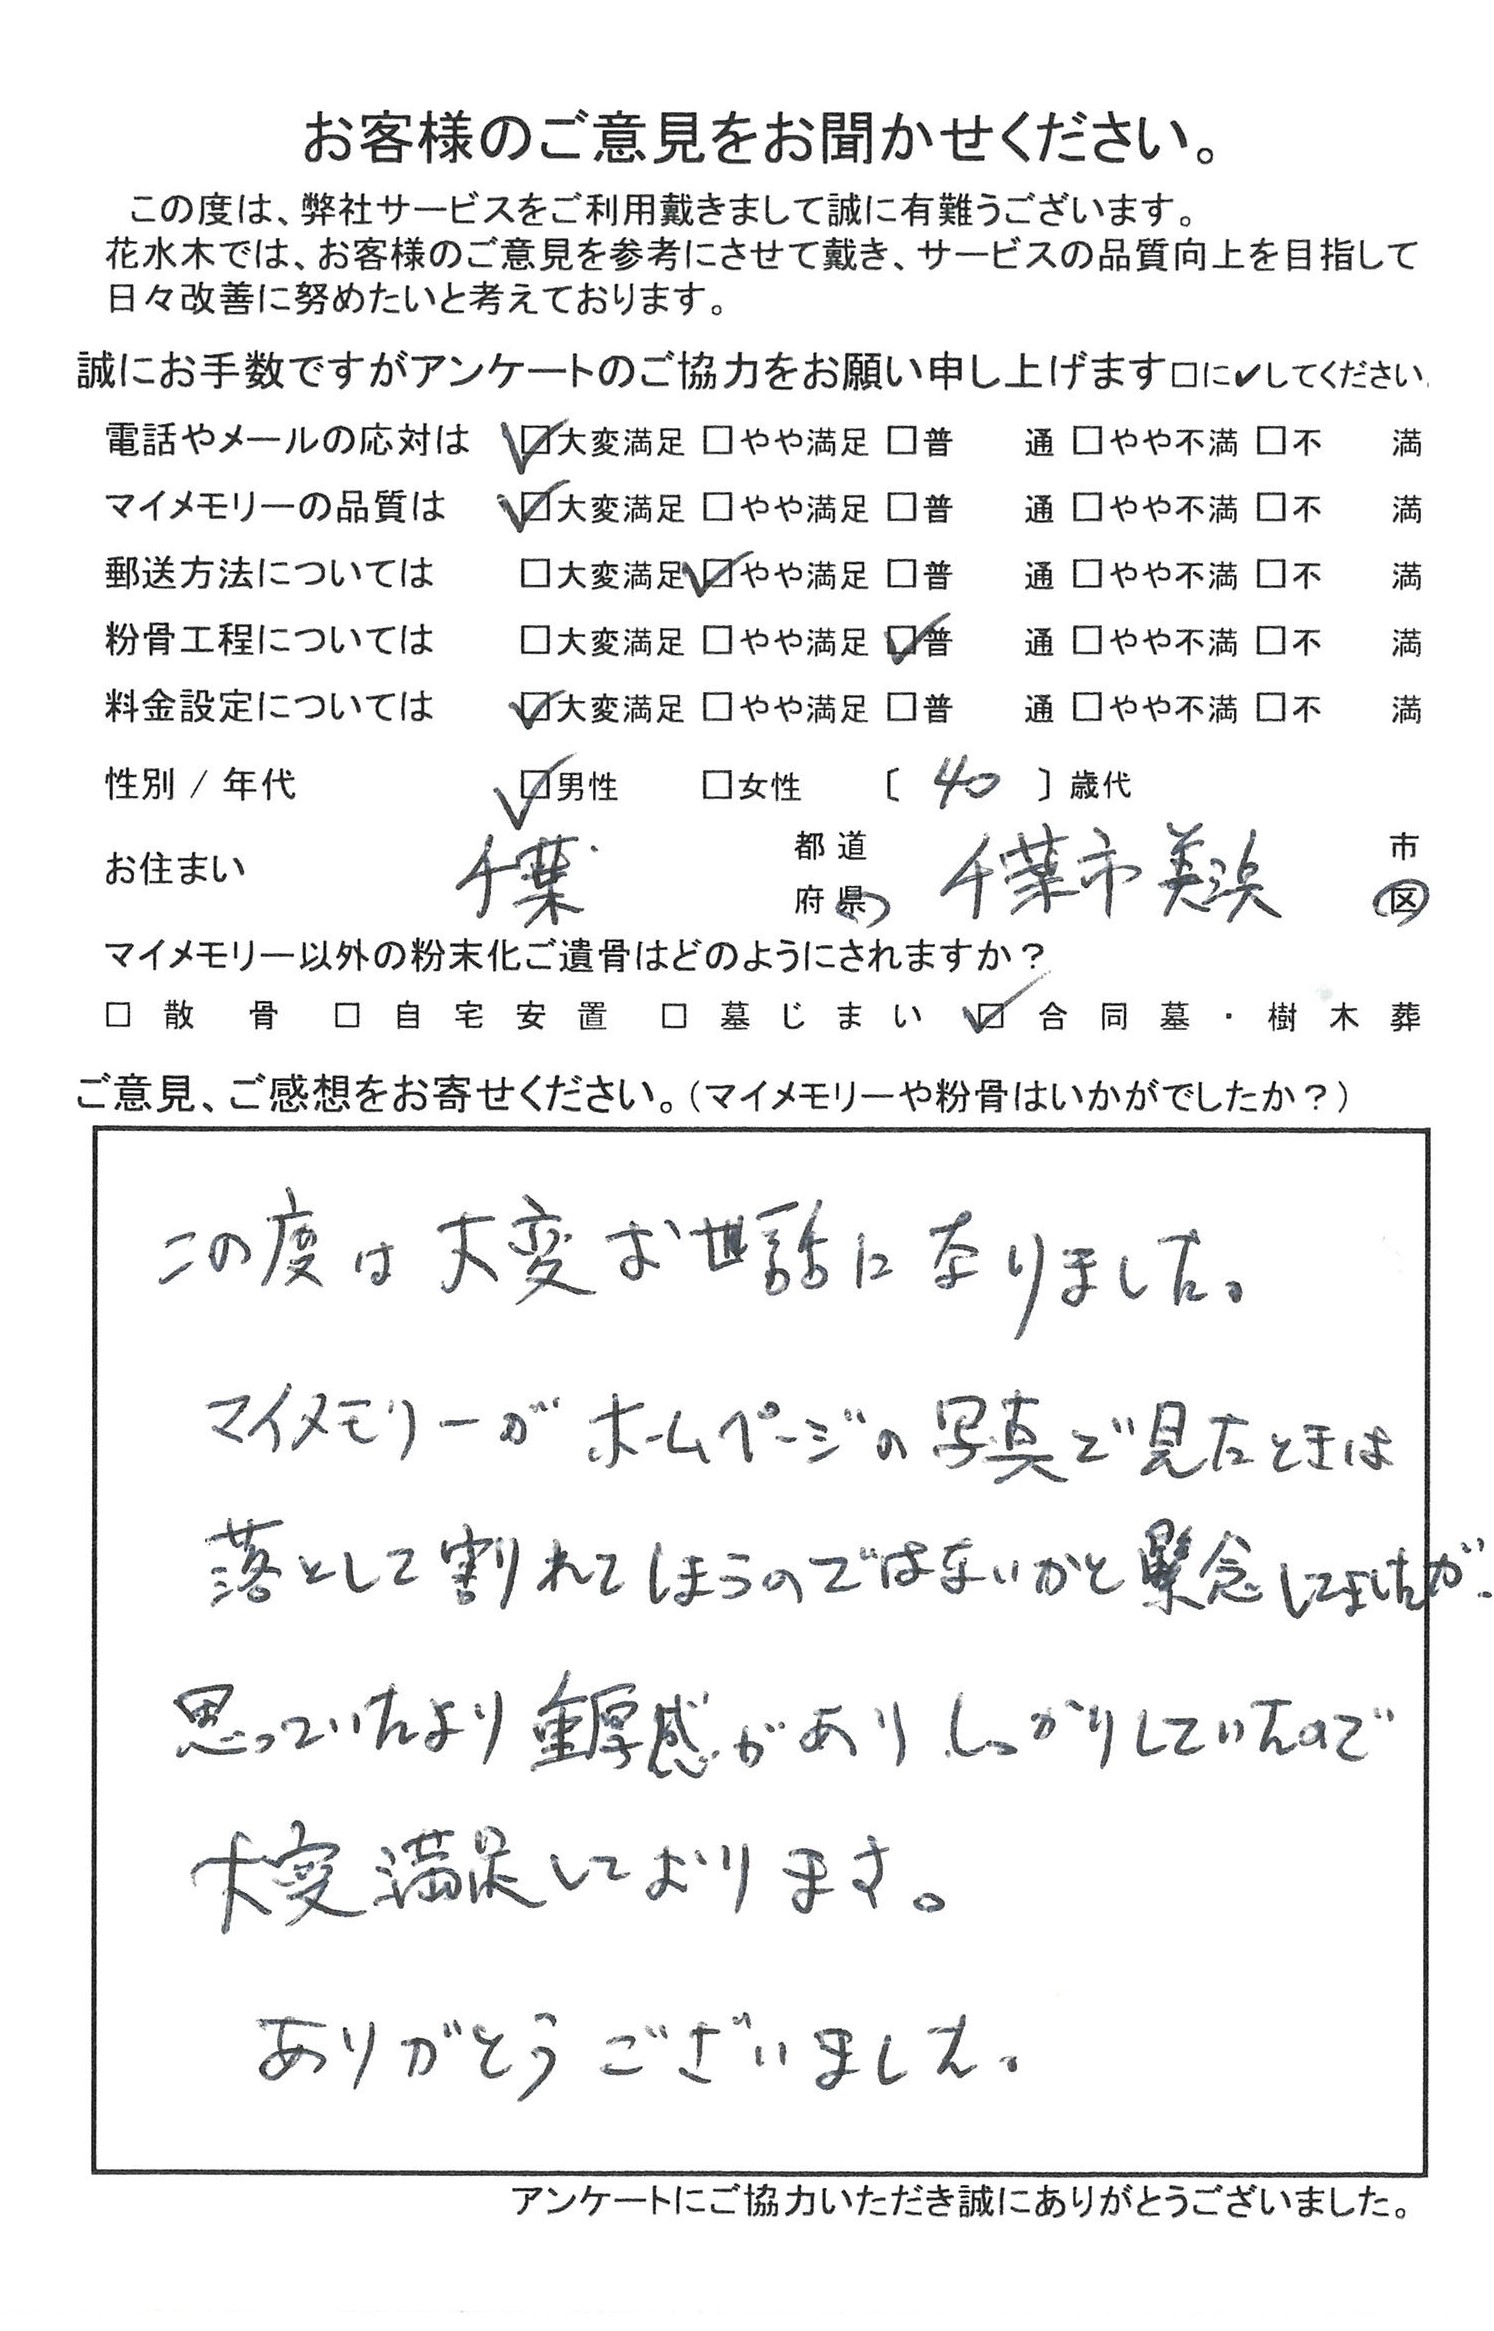 お客様のご意見をお聞かせください。
この度は、弊社サービスをご利用戴きまして誠に有難うございます。
花水木では、お客様のご意見を参考にさせて戴き、サービスの品質向上を目指して
日々改善に努めたいと考えております。
誠にお手数ですがアンケートのご協力をお願い申し上げます□に✔してください。
電話やメールの応対は ☑大変満足 □やや満足 □普 通 □やや不満 □不 満
マイメモリーの品質は ☑大変満足 □やや満足 □普 通 □やや不満 □不 満
郵送方法については □大変満足 ☑やや満足 □普 通 □やや不満 □不 満
粉骨工程については □大変満足 □やや満足 ☑普 通 □やや不満 □不 満
料金設定については ☑大変満足 □やや満足 □普 通 □やや不満 □不 満
性別 / 年代 ☑男性 □女性 〔 40 〕歳代
お住まい 千葉 都道府県 千葉市美浜 市区
マイメモリー以外の粉末化ご遺骨はどのようにされますか?
□ 散骨 □ 自宅安置 □ 墓じまい ☑ 合同墓・樹木葬
ご意見、ご感想をお寄せください。(マイメモリーや粉骨はいかがでしたか?)
この度は大変お世話になりました。
マイメモリーがホームページの写真で見たときは
落として割れてしまうのではないかと懸念してましたが、
思っていたより重厚感がありしっかりしていたので
大変満足しております。
ありがとうございました。
アンケートにご協力いただき誠にありがとうございました。